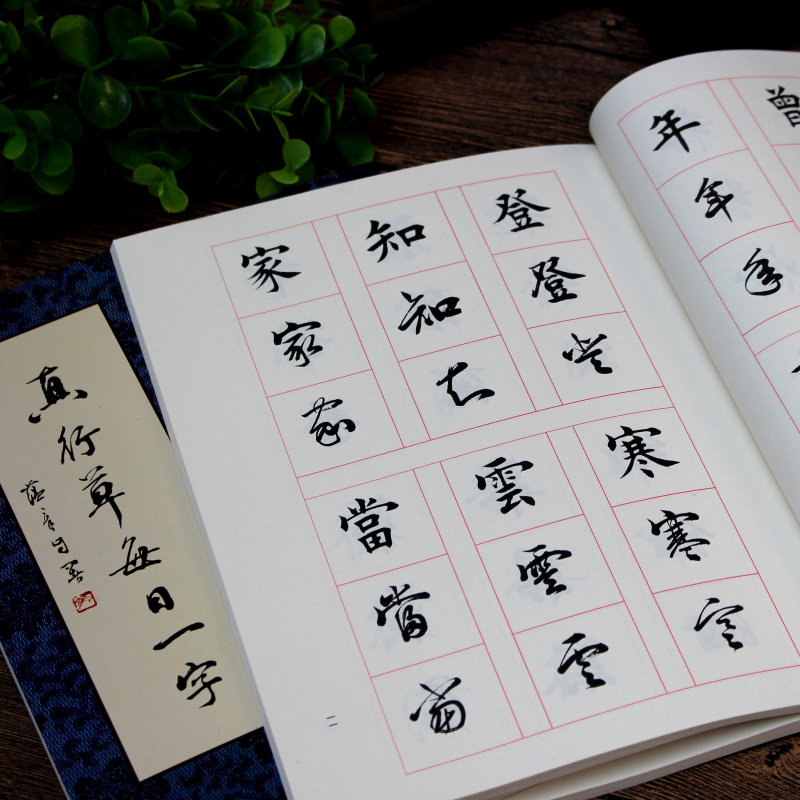 真行草每日一字
曾
年年年
登登登
知知知
家家家
寒寒寒
雲雲雲
當當當
二